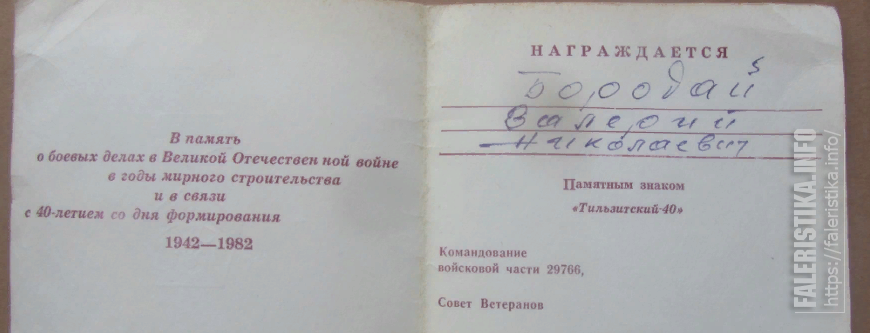 В память
о боевых делах в Великой Отечествен ной войне
в годы мирного строительства
и в связи
с 40-летием со дня формирования
1942—1982
НАГРАЖДАЕТСЯ
Бородай
Валерий
Николаевич
Памятным знаком
«Тильзитский-40»
Командование
войсковой части 29766,
Совет Ветеранов
FALERISTIKA.INFO
https://faleristika.info/